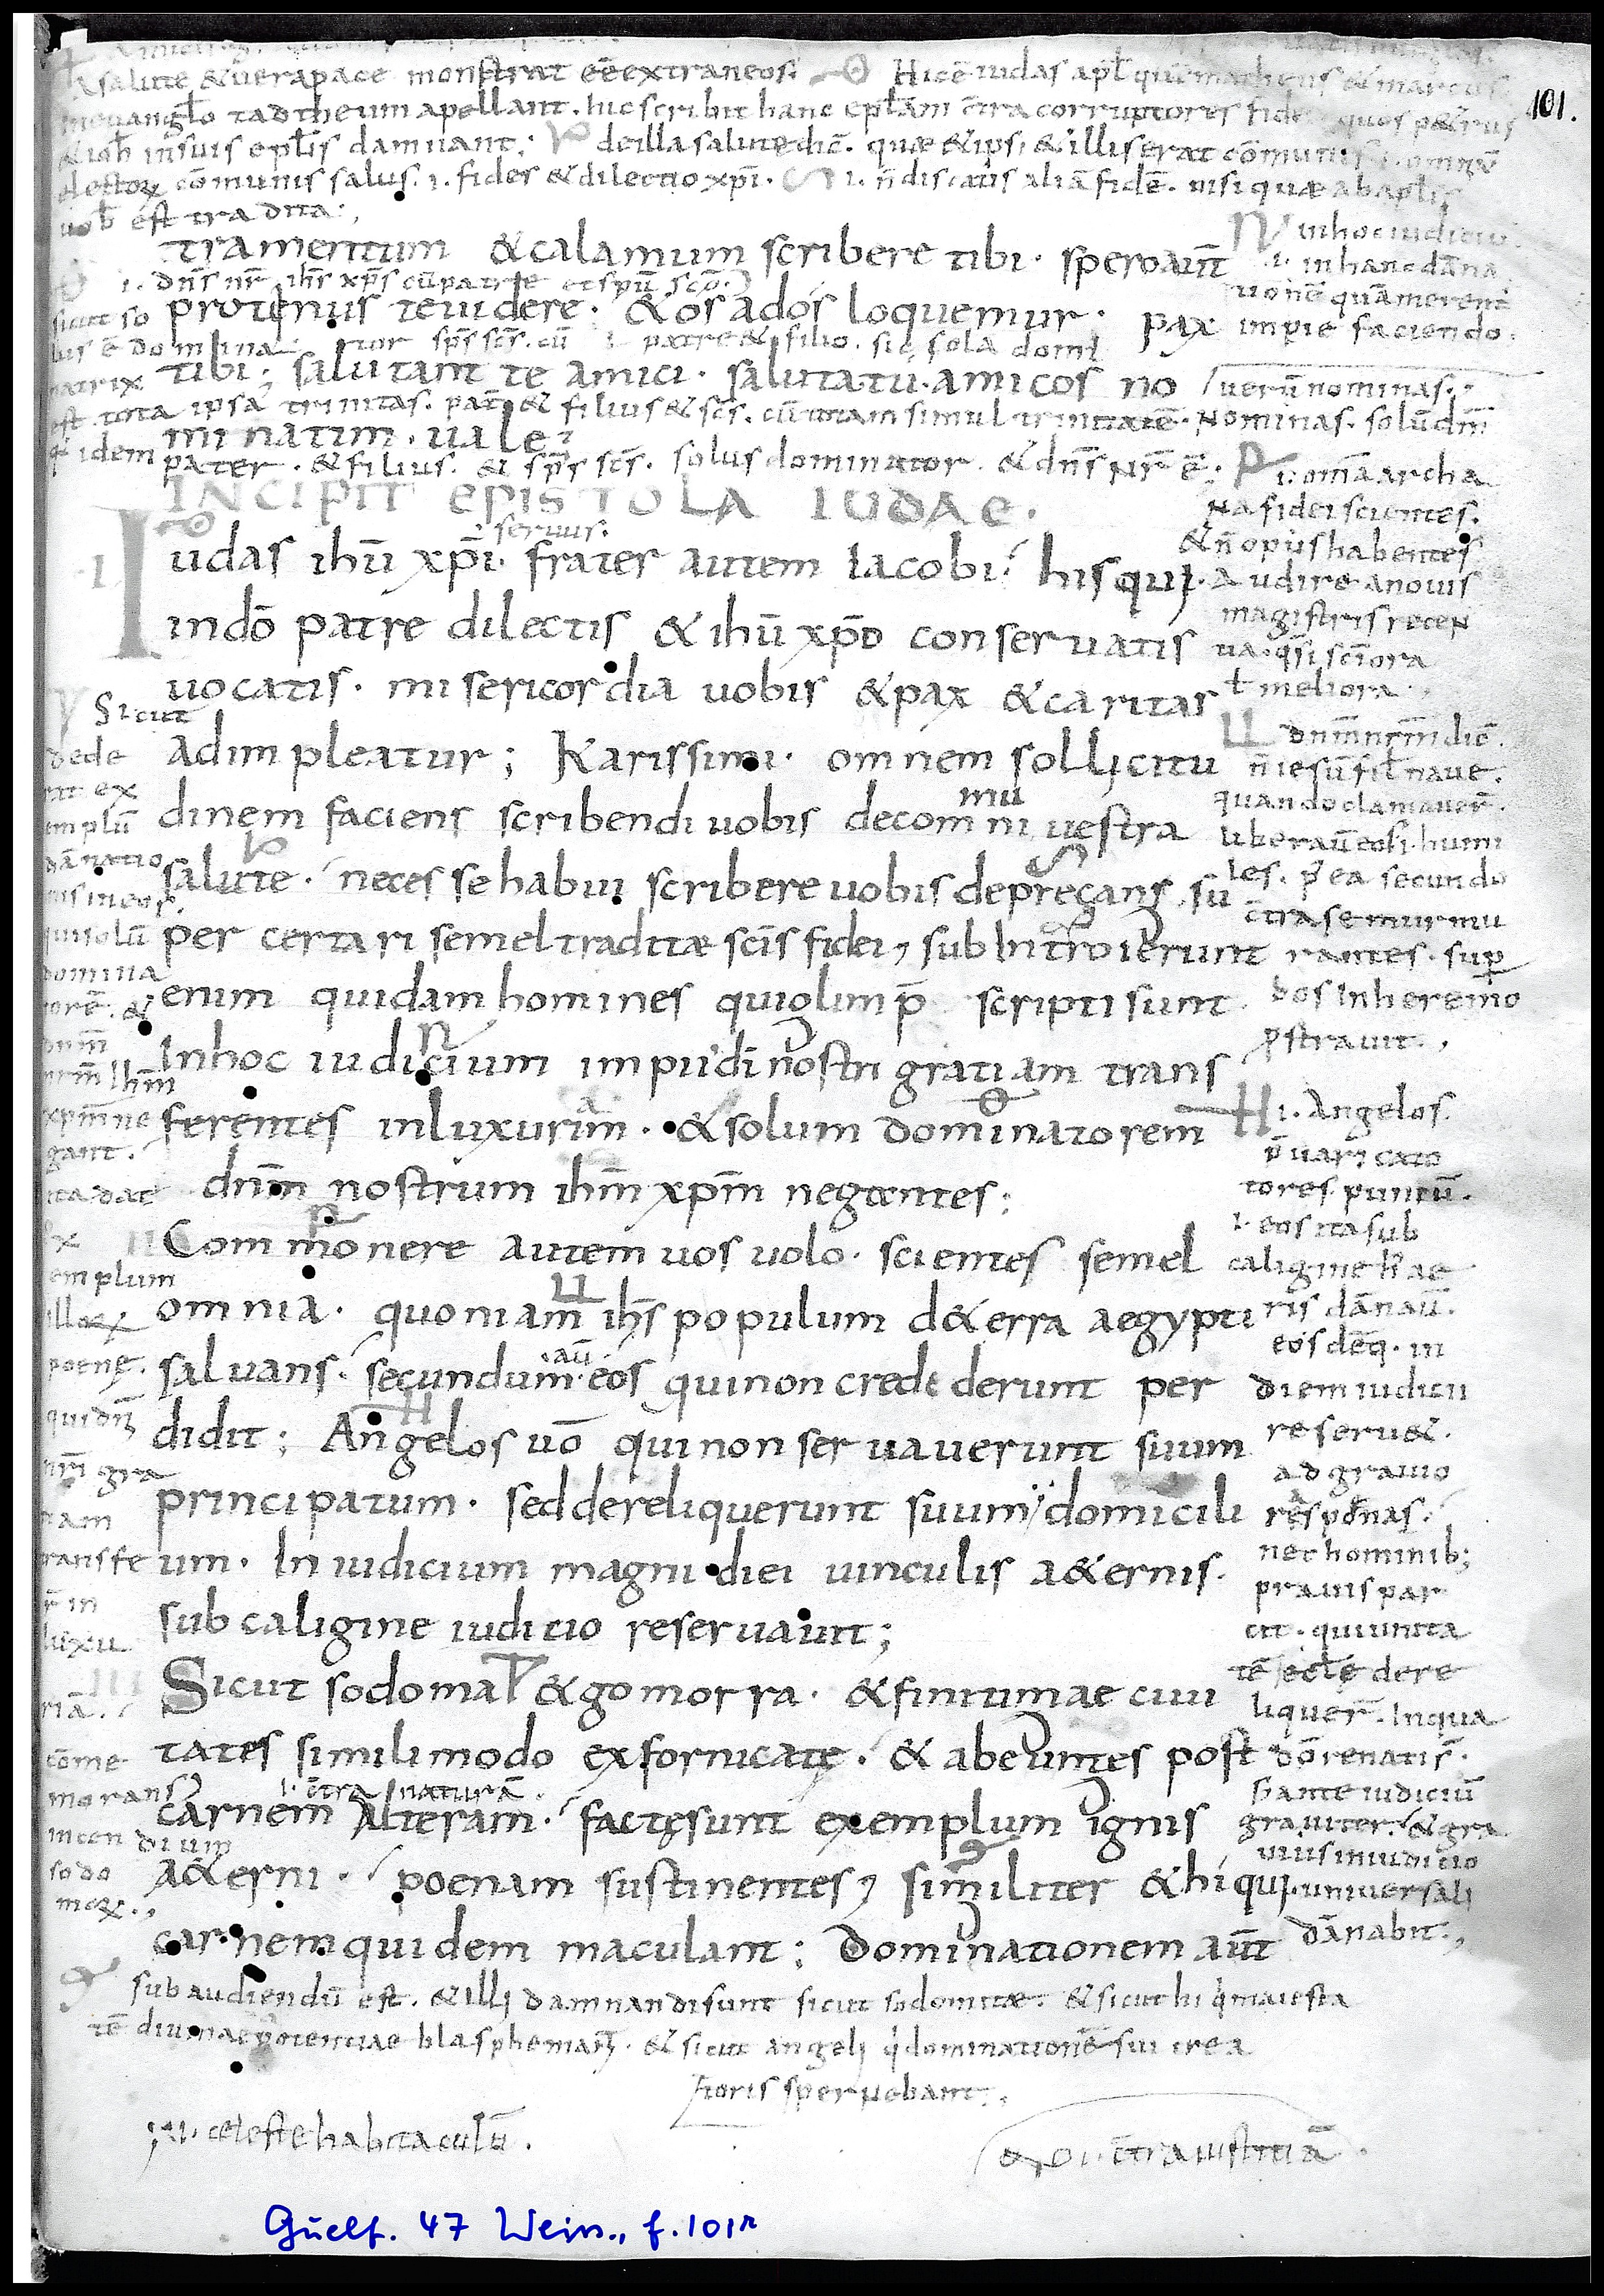 a salute & uera pace monstrat eē extraneos. Hic ē iudas apl̄ quē matheus & marcus
in euanglo taddheum apellant. hic scribit hanc eplam c̄tra corruptores fidei quos petrus
& ioh in suis eplis damnant; de illa salute dic̄. quae & ipsi & illis erat cōmunis. i. omniū
electoꝝ cōmunis salus. i. fides & dilectio xp̄i. i. n̄ discatis aliā fidē. nisi quae ab aplis
uob est tradita;
101.
tramentum & calamum scribere tibi. spero aut̄
i. dn̄s nr̄ ih̄s xp̄s cū patre et spū sc̄o
protenus te uidere. & os ad os loquemur. pax
tor sp̄s sc̄s. cū patre & filio. sic sola domi
tibi; salutant te amici. saluta tu. amicos no
est tota ipsa trinitas. pat̄ & filius & sc̄s. cū unam simul trinitatē. Nominas. solū dn̄m
minatim. uale;
pater. & filius. & sp̄s sc̄s. solus dominator. & dn̄s nr̄ ē.
INCIPIT EPISTOLA IUDAE.
seruus.
Iudas ihū xp̄i. frater autem Iacobi. hisqui.
in dō patre dilectis & ihū xp̄o conseruatis
uocatis. misericordia uobis & pax & caritas
adimpleatur; Karissimi. omnem sollicitu
mu
dinem faciens scribendi uobis de comni uestra
salute. necesse habui scribere uobis deprecans su
per certari semel traditae sc̄is fidei, subintroierunt
enim quidam homines qui olim p̄scripti sunt
In hoc iudicium impii di nostri gratiam trans
ferentes in luxuriam. & solum dominatorem
dn̄m nostrum ih̄m xp̄m negantes;
Commonere autem uos uolo. scientes semel
omnia. quoniam ih̄s populum de terra aegypti
aū
saluans. secundum. eos qui non crede derunt per
didit; Angelos uō qui non seruauerunt suum
principatum. sed dereliquerunt suum domicili
um. In iudicium magni diei uinculis aeternis.
sub caligine iudicio reseruauit;
Sicut sodoma & gomorra. & finitimae ciui
tates simili modo ex fornicatę. & abeuntes post
i. c̄tra naturā.
carnem Alteram. factę sunt exemplum ignis
aeterni. poenam sustinentes, similiter & hi qui.
carnem quidem maculant; Dominationem aut̄
in hoc iudiciū.
i. in hanc dāna
tionē quā merent̄
impie faciendo.
uerū nominas.
i. om̄a archa
na fidei scientes.
& n̄ opus habentes
audire a nouis
magistris recen
tia. q̄si sc̄iora
ł meliora.
dn̄m nr̄m dic̄
n̄ iesū fil̄ naue.
quando clamauer̄.
liberau eos. humi
les. p̄ ea secundo
c̄tra se murmu
rantes. sup
bos in heremo
p̄strauit.
i. Angelos
p̄uaricato
tores puniū.
i. eos ita sub
caligine h ae
ris dānau.
eos denq. in
diem iudicii
reseruet.
ad grauio
res poenas.
nec hominib;
prauis par
cit. qui unita
tē eclę dere
liquer̄. In qua
dō renatis.
s ante iudiciū
grauiter. & gra
uius in iudicio
uniuersali
dānabit.
sicut so
lus ē domina
natrix
idem
Sicut
dede
rit ex
emplū
dānatio
nis in eos.
qui solū
domina
torē. &
dn̄m
nr̄m ih̄m
xp̄m ne
gant.
ita dat
ex
emplum
poenę.
qui dn̄i
nr̄i gra
tiam
transfe
r̄ in
luxu
riā.
cōme
morans
incendium
sodo
moꝝ.
subaudiendū est. & illi damnandi sunt sicut sodomitae. & sicut hi qi maiesta
tē diuinae potentiae blasphemant̄. & sicut angeli qi dominationē sui crea
toris spernebant.
i. celeste habitaculū.
i. c̄tra iustitiā.
Guelf. 47 Weiss., f. 101r